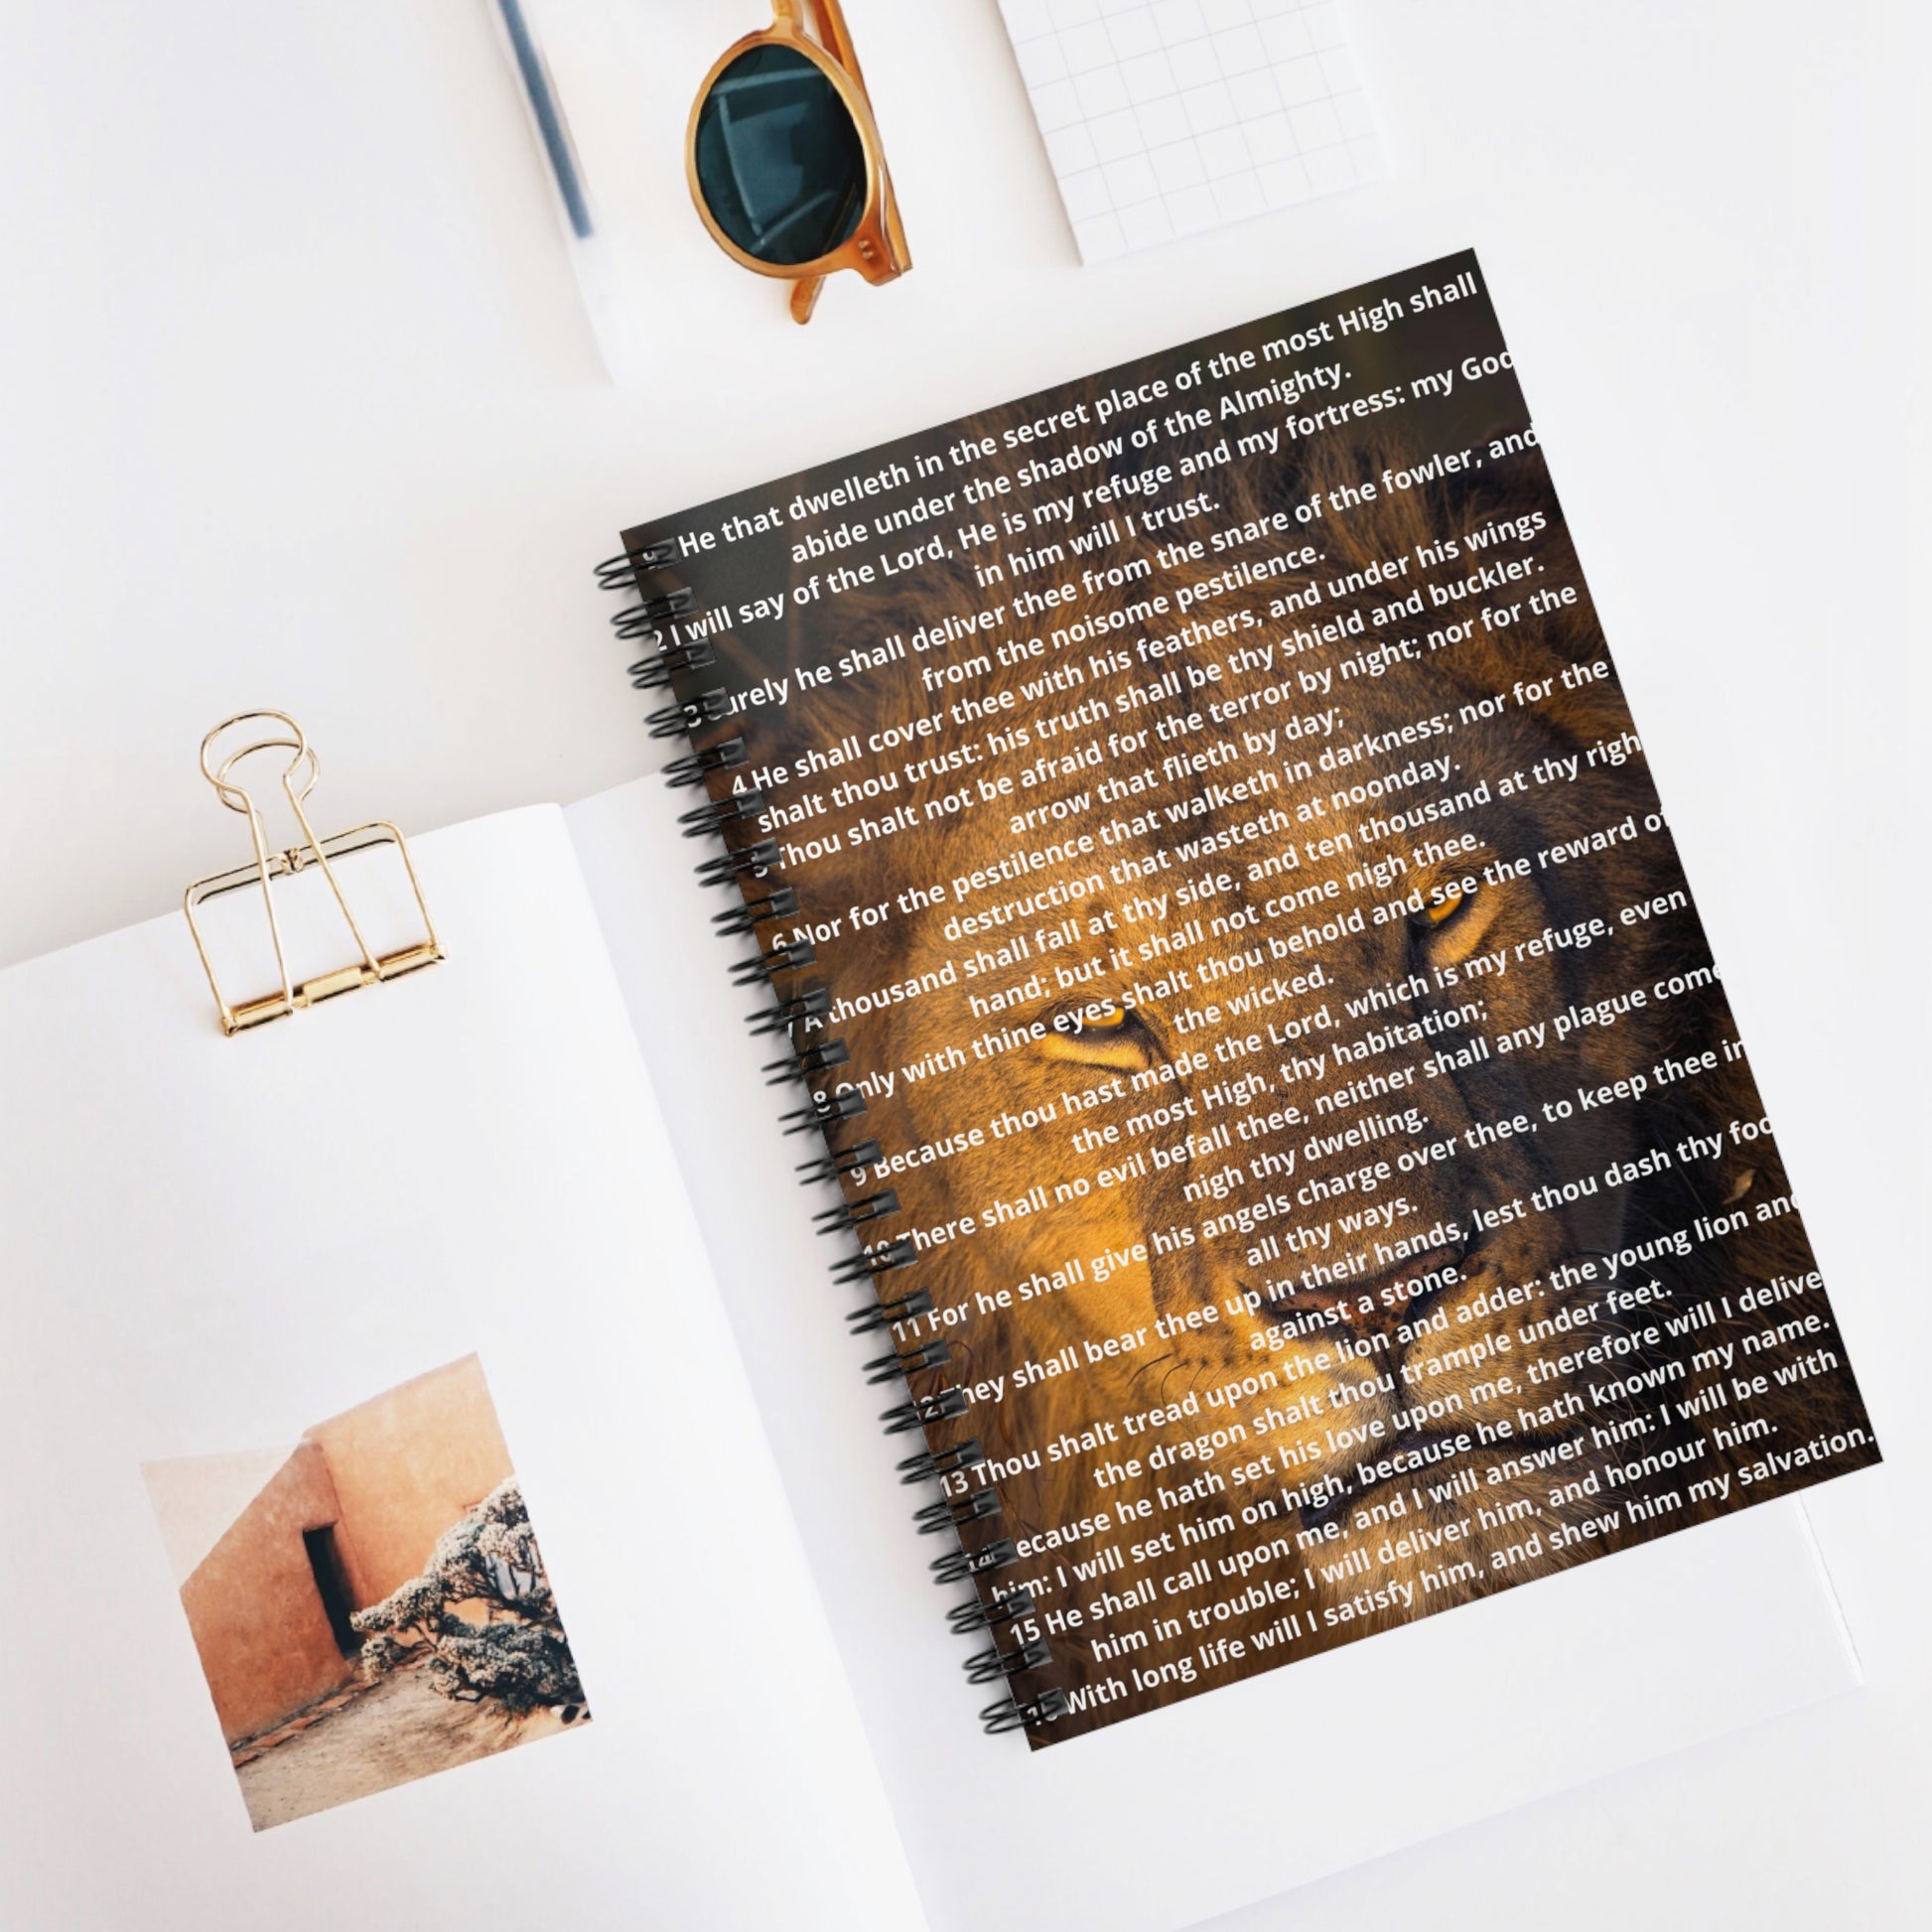 He that dwelleth in the secret place of the most High shall
abide under the shadow of the Almighty.
2 I will say of the Lord, He is my refuge and my fortress: my God
in him will I trust.
3 Surely he shall deliver thee from the snare of the fowler, and
from the noisome pestilence.
4 He shall cover thee with his feathers, and under his wings
shalt thou trust: his truth shall be thy shield and buckler.
5 Thou shalt not be afraid for the terror by night; nor for the
arrow that flieth by day;
6 Nor for the pestilence that walketh in darkness; nor for the
destruction that wasteth at noonday.
7 A thousand shall fall at thy side, and ten thousand at thy righ
hand; but it shall not come nigh thee.
8 Only with thine eyes shalt thou behold and see the reward of
the wicked.
9 Because thou hast made the Lord, which is my refuge, even
the most High, thy habitation;
10 There shall no evil befall thee, neither shall any plague come
nigh thy dwelling.
11 For he shall give his angels charge over thee, to keep thee in
all thy ways.
12 They shall bear thee up in their hands, lest thou dash thy foo
against a stone.
13 Thou shalt tread upon the lion and adder: the young lion and
the dragon shalt thou trample under feet.
14 Because he hath set his love upon me, therefore will I delive
him: I will set him on high, because he hath known my name.
15 He shall call upon me, and I will answer him: I will be with
him in trouble; I will deliver him, and honour him.
16 With long life will I satisfy him, and shew him my salvation.